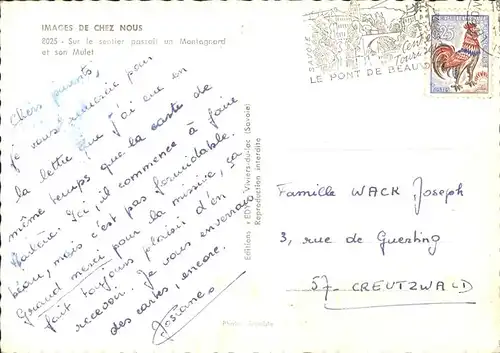 IMAGES DE CHEZ NOUS
8025 - Sur le sentier passait un Montagnard
et son Mulet
Chers parents,
Je vous remercie pour
la lettre que j'ai eue en
même temps que la carte de
Ici, il commence à faire
beau, mais c'est pas formidable.
Grand merci pour la missive, ça
fait toujours plaisir d'en
recevoir. Je vous enverrai
des cartes, encore.
Josiane
Editions EDY Viviers-du-lac (Savoie)
Reproduction interdite
SAVOIE
LE PONT DE BEAUV
0,25
Famille WACK Joseph
3, rue de Guerting
57. CREUTZWALD